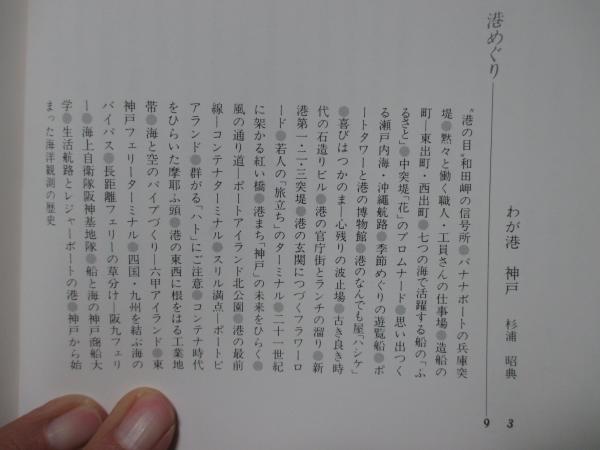 わが港 神戸 杉浦 昭典 3
港めぐり 9
〝港の目〟和田岬の信号所●バナナボートの兵庫突
堤●黙々と働く職人・工員さんの仕事場●造船の
町―東出町・西出町●七つの海で活躍する船の「ふ
るさと」●中突堤「花」のプロムナード●思い出つく
る瀬戸内海・沖縄航路●季節めぐりの遊覧船●ポ
ートタワーと港の博物館●港のなんでも屋〝ハシケ〟
●喜びはつかのま―心残りの波止場●古き良き時
代の石造りビル●港の官庁街とランチの溜り●新
港第一・二・三突堤●港の玄関につづくフラワーロ
ード●若人の「旅立ち」のターミナル●二十一世紀
に架かる紅い橋●港まち「神戸」の未来をひらく●
風の通り道―ポートアイランド北公園●港の最前
線―コンテナターミナル●スリル満点―ポートピ
アランド●群がる「ハト」にご注意●コンテナ時代
をひらいた摩耶ふ頭●港の東西に根をはる工業地
帯●海と空のパイプづくり―六甲アイランド●東
神戸フェリーターミナル●四国・九州を結ぶ海の
バイパス●長距離フェリーの草分け―阪九フェリ
ー●海上自衛隊阪神基地隊●船と海の神戸商船大
学●生活航路とレジャーボートの港●神戸から始
まった海洋観測の歴史